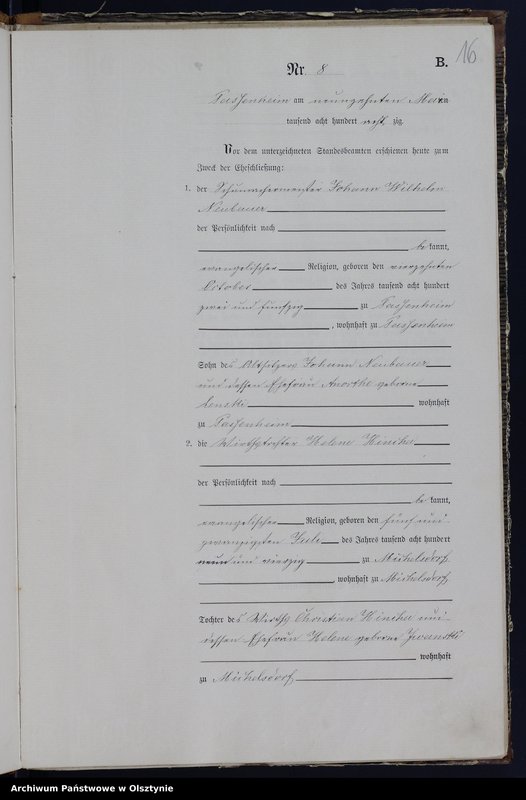 16
B.
Nr. 8
Passenheim am neunzehnten Mai
tausend acht hundert acht zig.
Vor dem unterzeichneten Standesbeamten erschienen heute zum
Zweck der Eheschließung:
1. der Schuhmachermeister Johann Wilhelm
Neubauer
der Persönlichkeit nach
be kannt,
evangelischer Religion, geboren den vierzehnten
October des Jahres tausend acht hundert
zwei und fünfzig zu Passenheim
, wohnhaft zu Passenheim
Sohn des Altsitzers Johann Neubauer
und dessen Ehefrau geborne
wohnhaft
zu Passenheim
2. die Wirthstochter Helene
der Persönlichkeit nach
be kannt,
evangelischer Religion, geboren den fünf und
zwanzigsten Juli des Jahres tausend acht hundert
neun und vierzig zu Michelsdorf
, wohnhaft zu Michelsdorf
Tochter des Wirths Christian und
dessen Ehefrau Helene geborne
wohnhaft
zu Michelsdorf
Archiwum Państwowe w Olsztynie